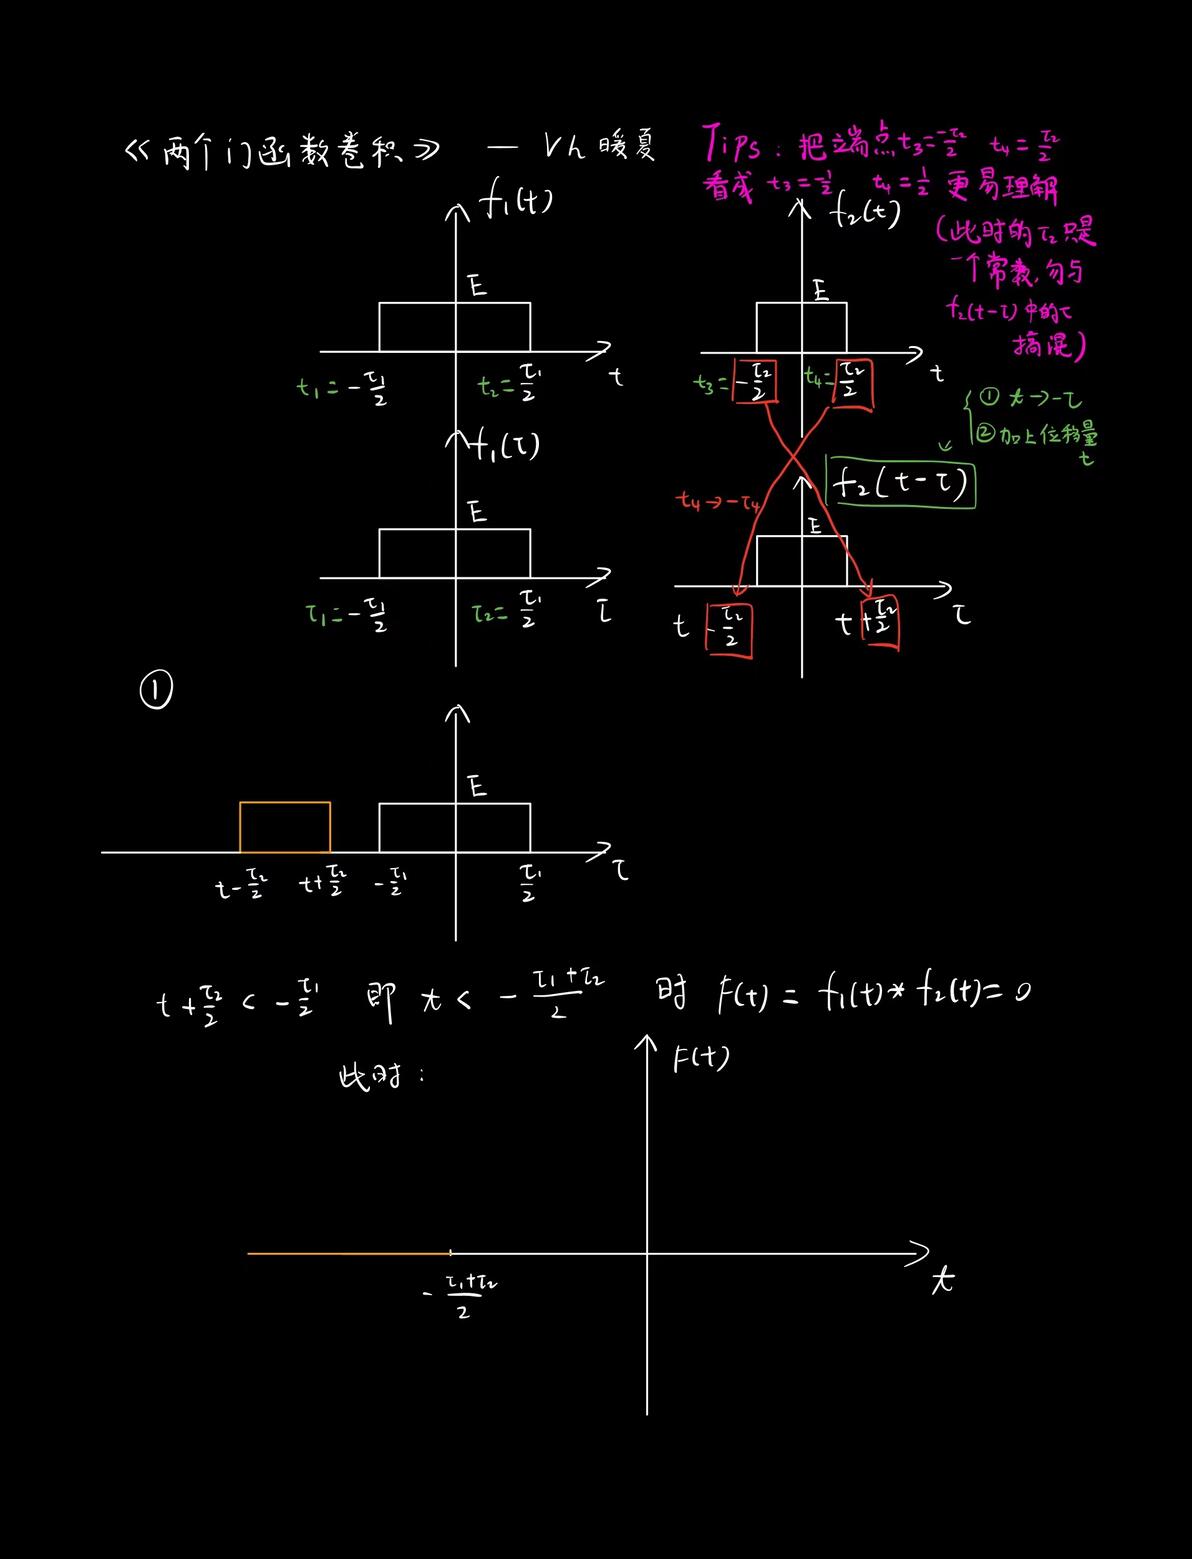 《两个门函数卷积》 — Vh 暖夏
Tips：把立端点 t₃=-τ₂/2 t₄=τ₂/2
看成 t₃=-1/2 t₄=1/2 更易理解
(此时的 τ₂ 只是
一个常数,勿与
f₂(t-τ) 中的τ
搞混)
f₁(t)
E
t₁=-τ₁/2 t₂=τ₁/2 t
f₂(t)
E
t₃=-τ₂/2 t₄=τ₂/2 t
① t→-τ
② 加上位移量
t
f₁(τ)
E
τ₁=-τ₁/2 τ₂=τ₁/2 τ
f₂(t-τ)
t₄→-τ₄
E
t-τ₂/2 t+τ₂/2 τ
①
E
t-τ₂/2 t+τ₂/2 -τ₁/2 τ₁/2 τ
t+τ₂/2 < -τ₁/2 即 t < -(τ₁+τ₂)/2 时 F(t) = f₁(t)* f₂(t)= 0
此时：
F(t)
-(τ₁+τ₂)/2 t